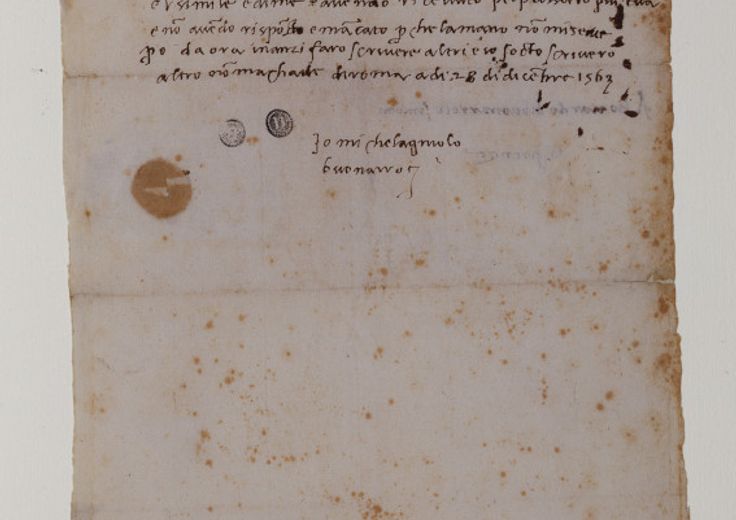 pel passato più tua
e nō auēdo rispōsto e mācato ꝑ che la mano nō mi serue
ꝑo da ora inanzi faro scriuere altri e io sotto scriuero
altro nō machade di roma a di 28 di dicēbre 1563
Io michelagniolo
buonarroti